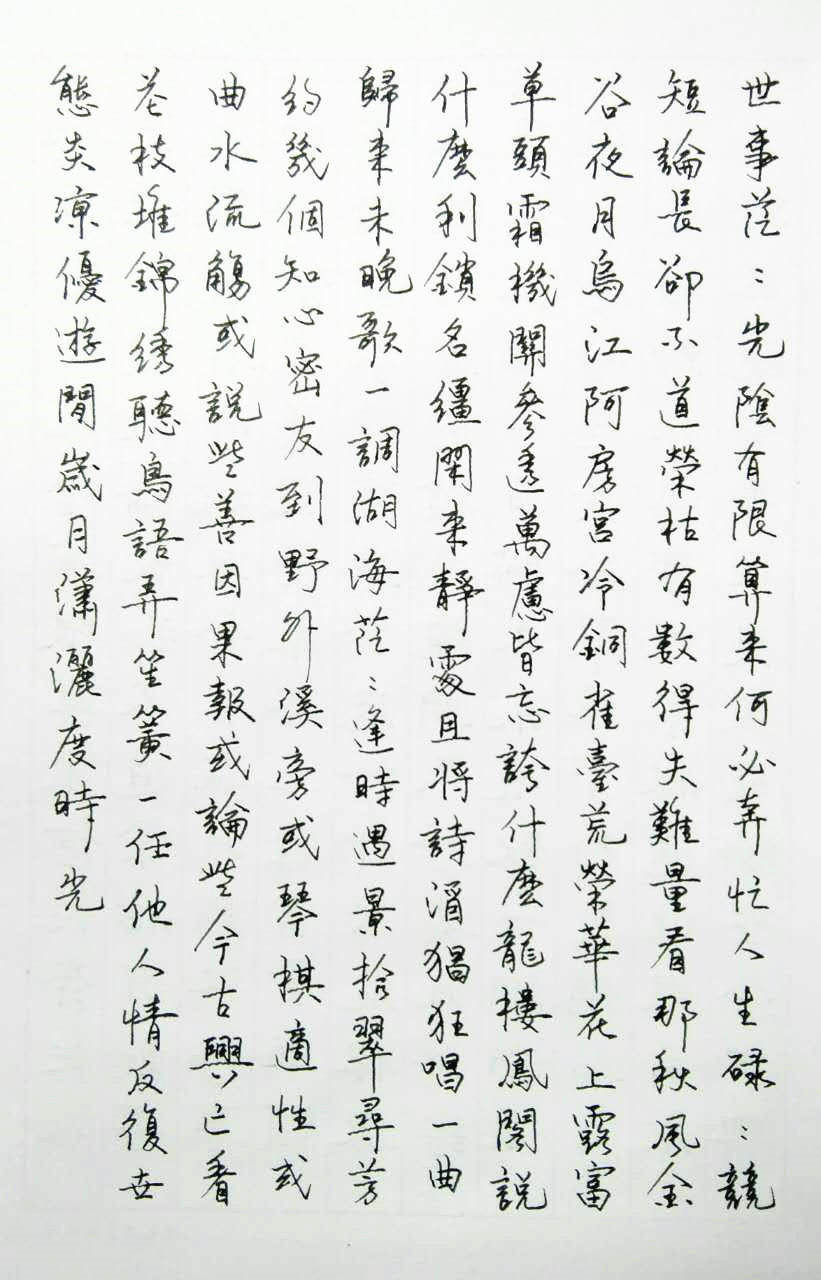 世事茫:光陰有限算来何必奔忙人生碌:競
短論長卻不道榮枯有数得失難量看那秋風金
谷夜月烏江阿房宮冷銅雀臺荒榮華花上露富
草頭霜機關參透萬慮皆忘誇什麼龍樓鳳閣說
什麼利鎖名繮閑来靜處且将詩酒猖狂唱一曲
歸来未晚歌一調湖海茫:逢時遇景拾翠尋芳
約幾個知心密友到野外溪旁或琴棋適性或
曲水流觴或說些善因果報或論些今古興亡看
花枝堆錦綉聽鳥語弄笙簧一任他人情反復世
態炎涼優遊閒歲月瀟灑度時光